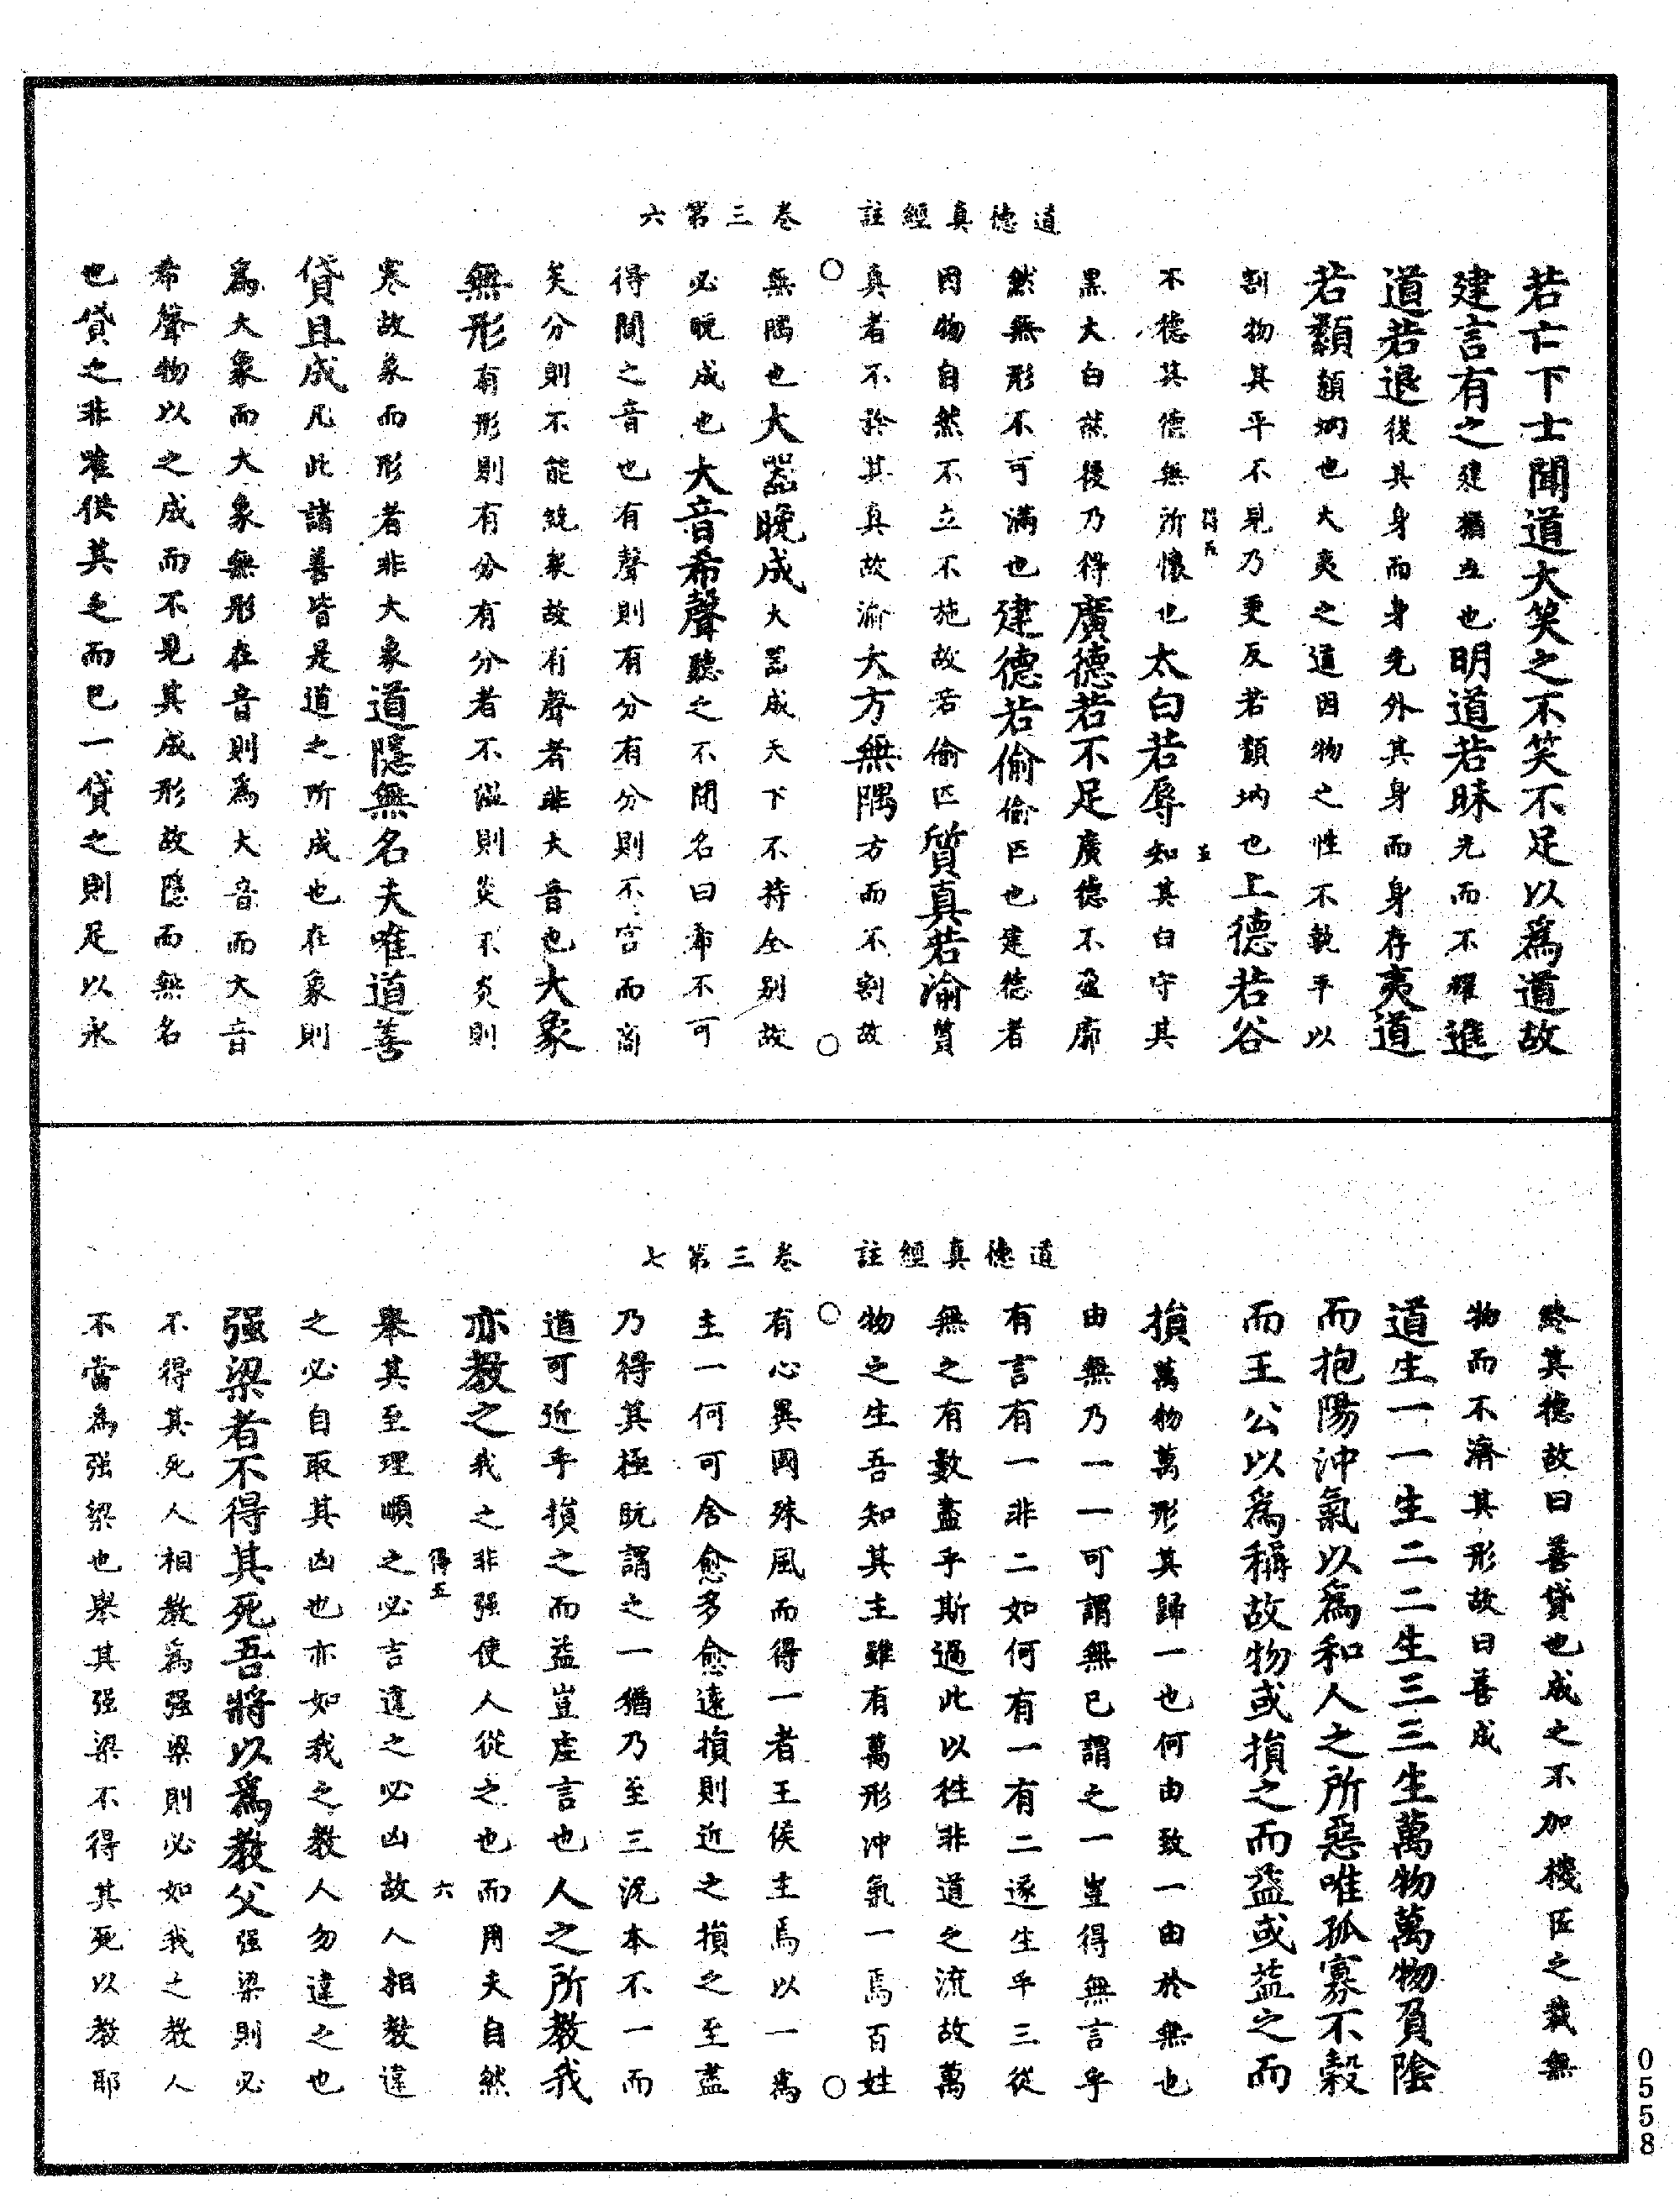 道德真經註　卷三第六
若亡下士聞道大笑之不笑不足以爲道故
建言有之建猶立也明道若昧光而不耀進
道若退後其身而身先外其身而身存夷道
若纇纇㘨也大夷之道因物之性不執平以
割物其平不見乃更反若纇㘨也上德若谷
不德其德無所懷也太白若辱知其白守其
黑大白然後乃得廣德若不足廣德不盈廓
然無形不可滿也建德若偷偷匹也建德者
因物自然不立不施故若偷匹質真若渝質
真者不矜其真故渝大方無隅方而不割故
無隅也大器晚成大器成天下不持全别故
必晚成也大音希聲聽之不聞名曰希不可
得聞之音也有聲則有分有分則不宫而商
矣分則不能統衆故有聲者非大音也大象
無形有形則有分有分者不温則炎不炎則
寒故象而形者非大象道隱無名夫唯道善
貸且成凡此諸善皆是道之所成也在象則
爲大象而大象無形在音則爲大音而大音
希聲物以之成而不見其成形故隱而無名
也貸之非唯供其乏而已一貸之則足以永
得五
五
道德真經註　卷三第七
終其德故曰善貸也成之不加機匠之裁無
物而不濟其形故曰善成
道生一一生二二生三三生萬物萬物負陰
而抱陽沖氣以爲和人之所惡唯孤寡不穀
而王公以爲稱故物或損之而益或益之而
損萬物萬形其歸一也何由致一由於無也
由無乃一一可謂無已謂之一豈得無言乎
有言有一非二如何有一有二遂生乎三從
無之有數盡乎斯過此以徃非道之流故萬
物之生吾知其主雖有萬形沖氣一焉百姓
有心異國殊風而得一者王侯主焉以一爲
主一何可舍愈多愈遠損則近之損之至盡
乃得其極旣謂之一猶乃至三況本不一而
道可近乎損之而益豈虚言也人之所教我
亦教之我之非强使人從之也而用夫自然
舉其至理順之必吉違之必凶故人相教違
之必自取其凶也亦如我之教人勿違之也
强梁者不得其死吾將以爲教父强梁則必
不得其死人相教爲强梁則必如我之教人
不當爲强梁也舉其强梁不得其死以教耶
得五
六
0558